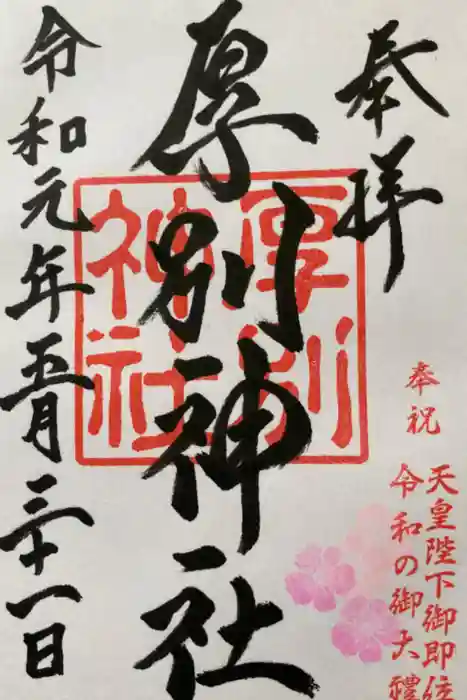 奉拝
厚別神社
厚別
神社
令和元年五月三十一日
奉祝
天皇陛下御即位
令和の御大禮